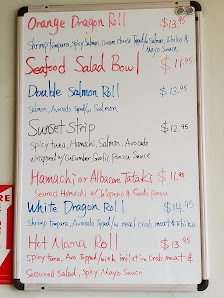 Orange Dragon Roll $13.95
Shrimp Tempura, Spicy Salmon, Cream Cheese Topped w/ Salmon, &
Mayo Sauce
Seafood Salad Bowl $11.95
Double Salmon Roll $13.95
Salmon, Avocado Topped w/ Salmon
Sunset Strip $12.95
Spicy tuna, Hamachi, Salmon, Avocado
wrapped w/ Cucumber Garlic Ponzu Sauce
Hamachi or Albacore Tataki $11.95
Seared Hamachi w/ Jalapeño & Garlic Ponzu
White Dragon Roll $14.95
Shrimp Tempura, Avocado Topped w/ real crab meat &
Hot Mama Roll $13.95
Spicy tuna, Avo Topped with Crab meat &
Seaweed Salad, Spicy Mayo Sauce